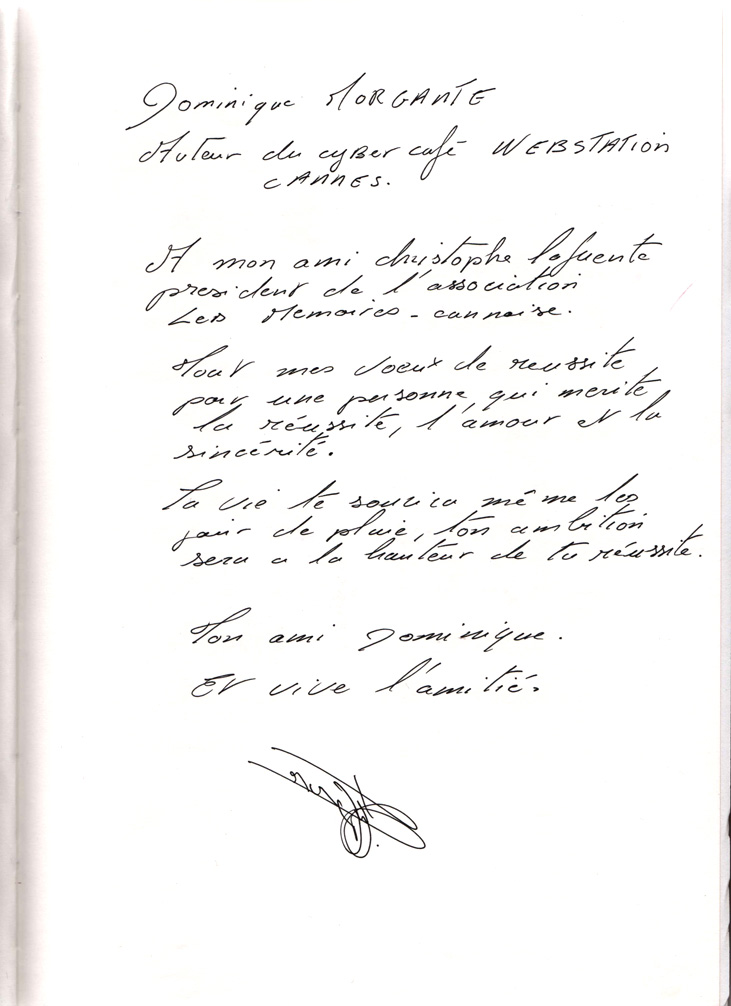 Dominique MORGANTE
Auteur du cyber café WEBSTATION
CANNES.
A mon ami christophe lafuente
president de l'association
Les Memoires - cannoise.
Tout mes voeux de reussite
pour une personne, qui merite,
la réussite, l'amour et la
sincérité.
La vie te sourira même les
jour de pluie, ton ambition
sera a la hauteur de ta réussite.
Ton ami Dominique.
Et vive l'amitié.